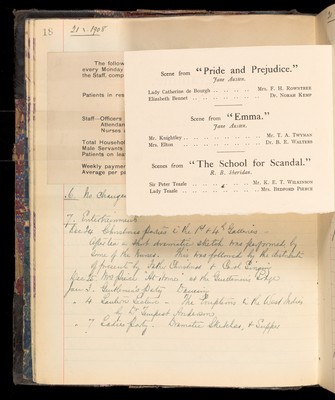 18
21 . 1 . 1908
The follow
every Monday
the Staff, comp
Patients in res
Staff—Officers
Attendan
Nurses
Total Househo
Male Servants
Patients on lea
Weekly paymen
Average per p
Scene from "Pride and Prejudice."
Jane Austen.
Lady Catherine de Bourgh .. .. .. .. Mrs. F. H. Rowntree
Elizabeth Bennet .. .. .. .. Dr. Norah Kemp
Scene from "Emma."
Jane Austen.
Mr. Knightley .. .. .. .. Mr. T. A. Twyman
Mrs. Elton .. .. .. .. Dr. B. E. Walters
Scenes from "The School for Scandal."
R. B. Sheridan.
Sir Peter Teazle .. .. .. Mr. K. E. T. Wilkinson
Lady Teazle .. .. .. .. Mrs. Bedford Pierce
6. No Changes
7. Entertainments
Dec 24 Christmas parties in the 1st & 4th Galleries -
a short dramatic sketch was performed by
some of the Nurses. This was followed by the distribution
of presents by Father Christmas & Carol Singing
"At Home" at the Gentlemen's Lodge
Jan 2. Gentlemen's Party Dancing
" 4 Lantern Lecture - The in the West Indies
by Dr Tempest Anderson,
" 7 Ladies Party - Dramatic Sketches, & Supper